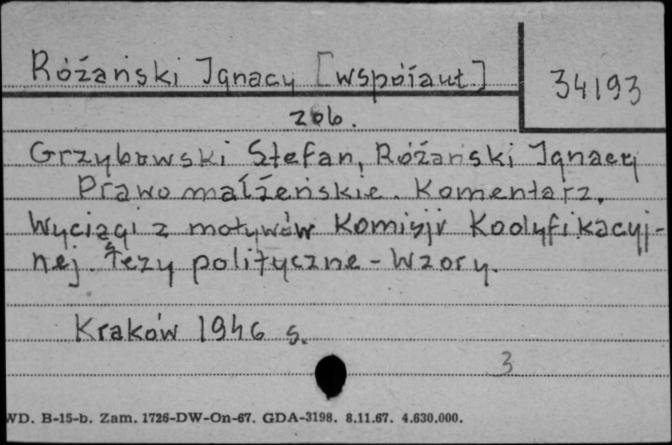 Różański Ignacy [współaut.]
34193
zob.
Grzybowski Stefan, Różański Ignacy
Prawo małżeńskie. Komentarz.
Wyciągi z motywów Komisji Kodyfikacyj-
nej. Tezy polityczne - Wzory.
Kraków 1946 s.
3
WD. B-15-b. Zam. 1726-DW-On-67. GDA-3198. 8.11.67. 4.630.000.